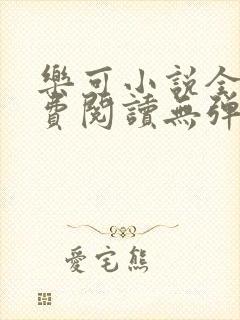 樂可小說全
費閱讀無彈
愛宅熊